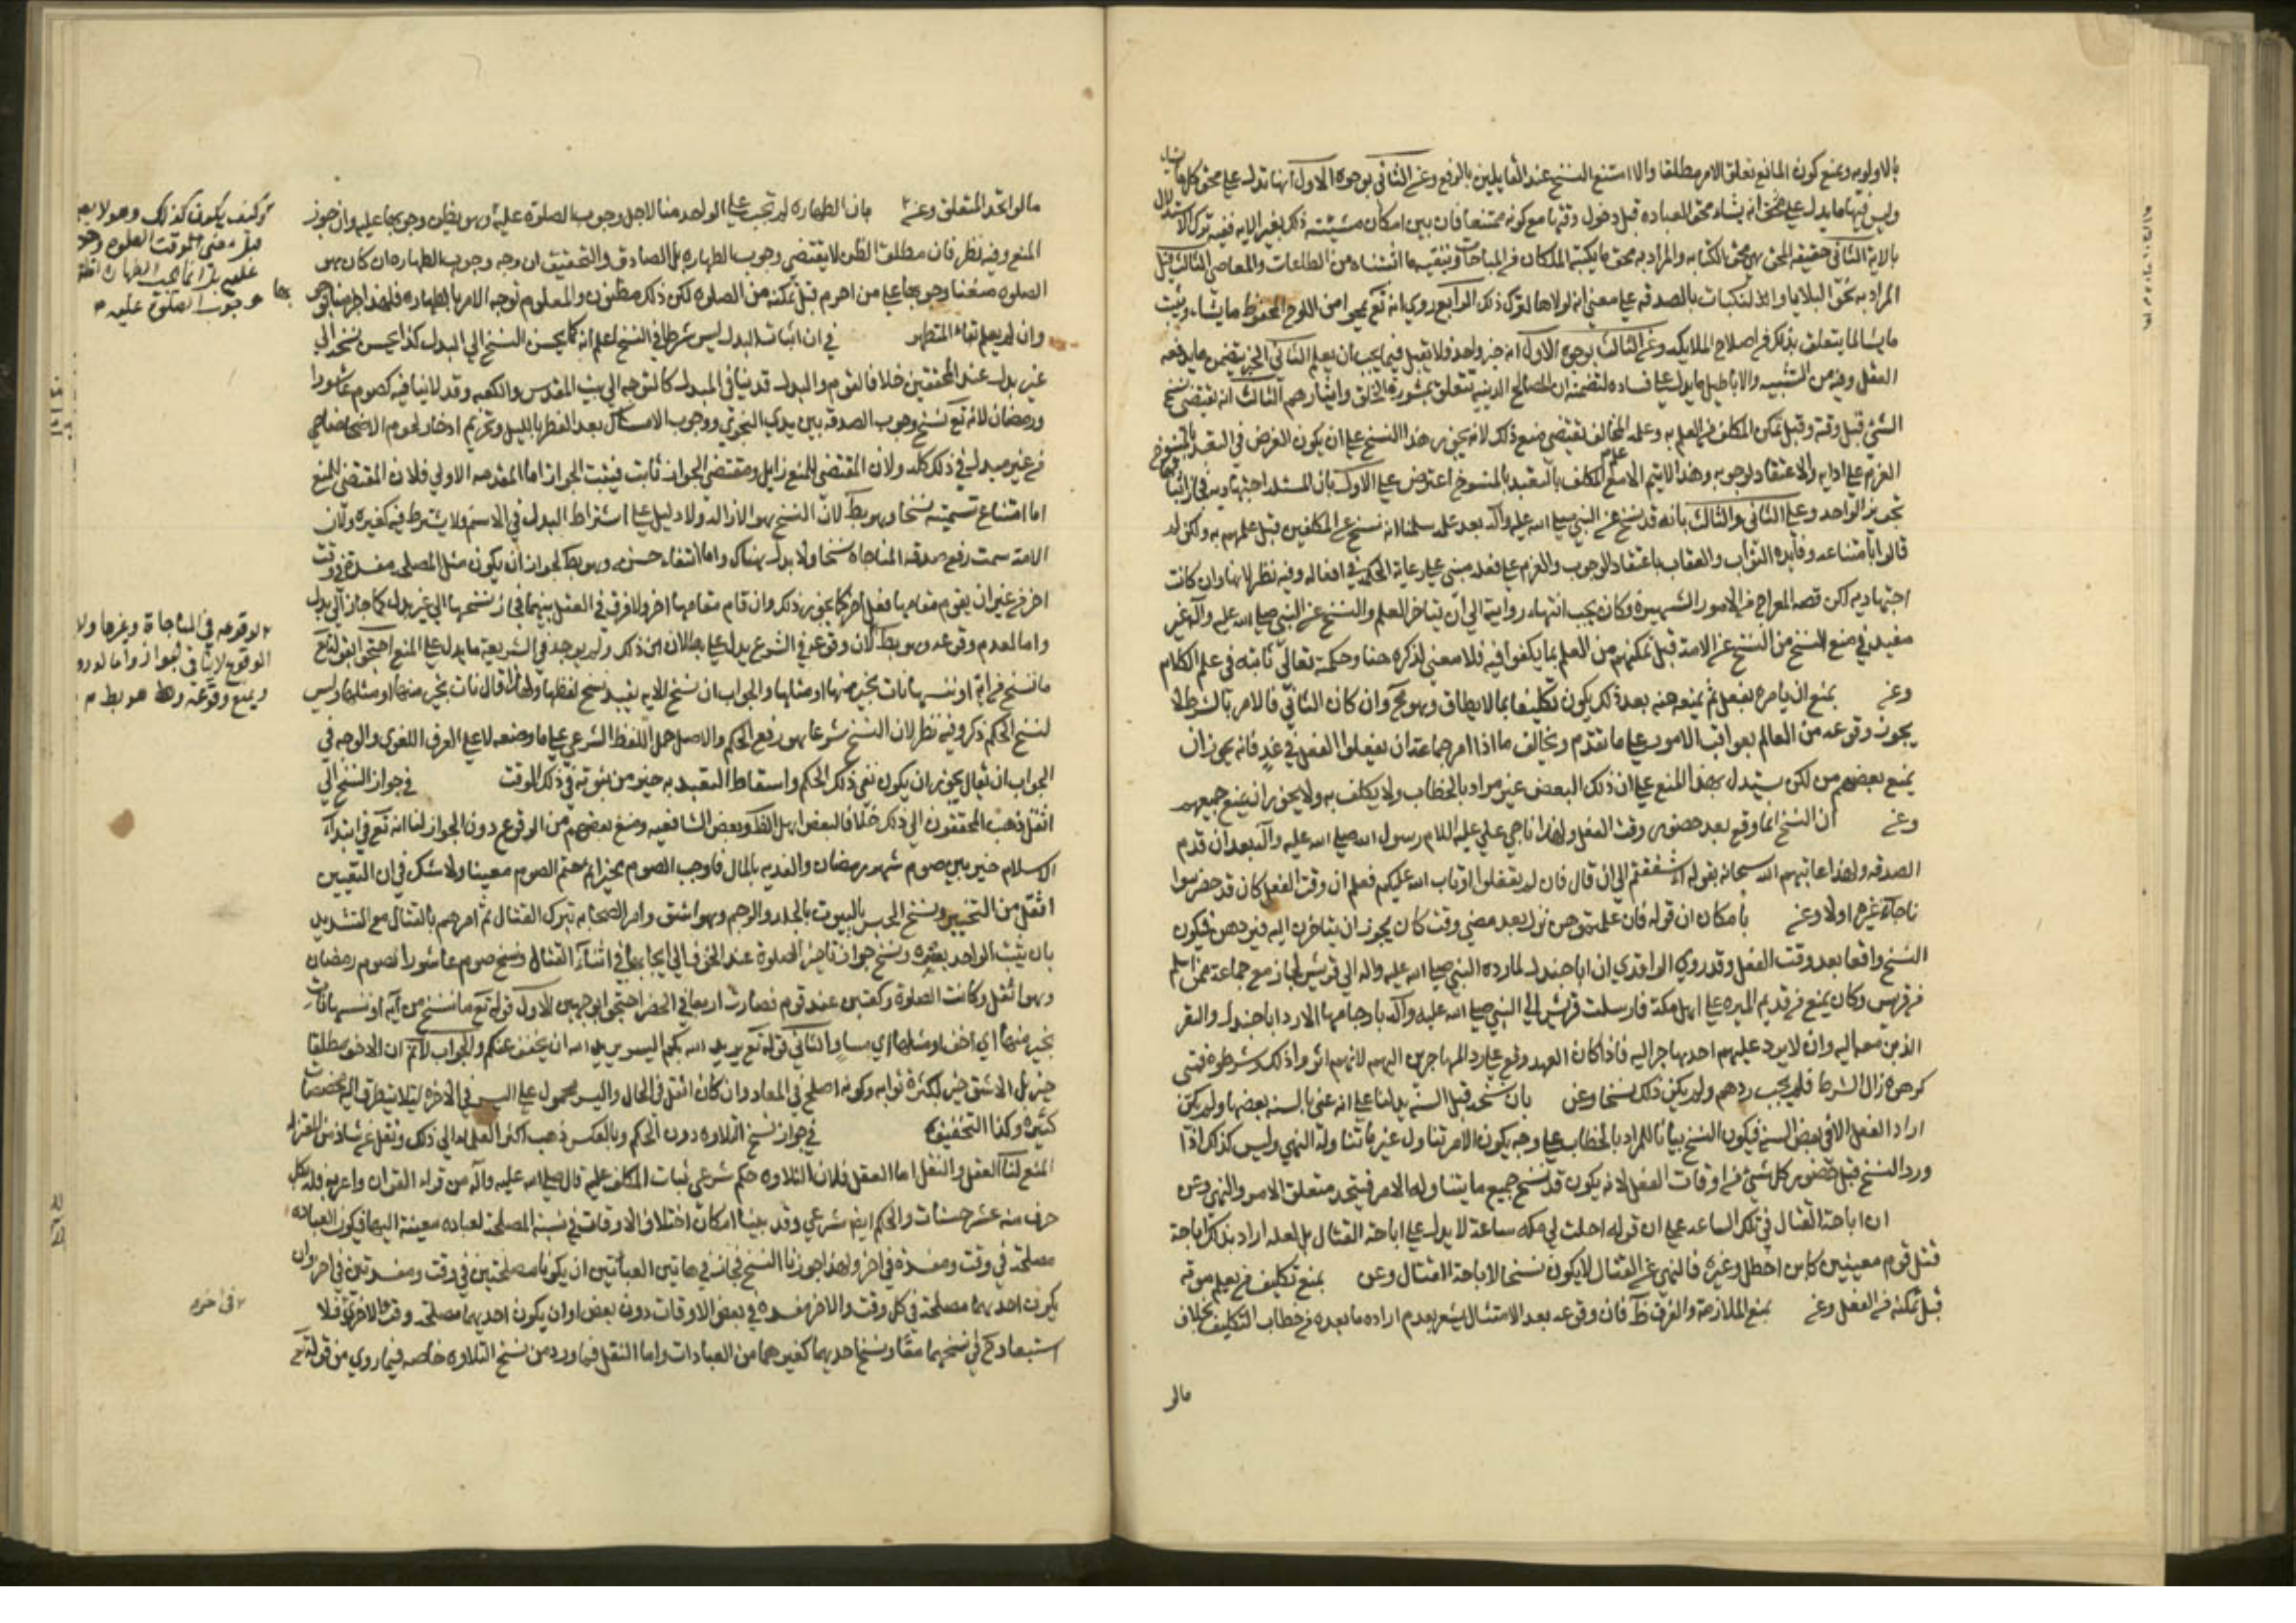 بالاولويه ويمنع كون المانع تعلق الامر مطلقا والا امتنع النسخ عند القايلين بالرفع وعن الثاني بوجوه الاول انها تدل على محو كل ما يشاء
وليس فيها ما يدل على انه يشاء محو العباده قبل دخول وقتها مع كونه ممتنعا فان بين امكان مشيئته ذلك بغير الايه ففيه ترك الاستدلال
بالاية الثاني حقيقه المحو هى محو الكتابه والمراد به محو ما يكتبه الملكان من المباحات وتبقيه ما اثبتناه من الطاعات والمعاصي الثالث قيل
المراد به محو البلايا والنكبات بالصدقه على معنى انه لولاها لنزل ذلك الرابع روي انه تع يمحو من اللوح المحفوظ ما يشاء ويثبت
ما يشا لما يتعلق بذلك من اصلاح الملايكه وعن الثالث بوجوه الاول انه خبر واحد فلا يقبل فيما يجب ان يعلم الثاني الخبر يتضمن ما يدفعه
العقل وفيه من التشبيه والاباطيل ما يدل على فساده لتضمنه ان المصالح الدينيه تتعلق بمشورة الخلق وايثارهم الثالث انه يقتضي نسخ
الشئ قبل وقته وقبل تمكن المكلف من العلم به وعله المخالف تقتضي منع ذلك لانه يجوز هذا النسخ على ان يكون الغرض في التعبد بالمنسوخ
العزم على ادايه والاعتقاد لوجوبه وهذا لا يتم الا مع علم المكلف بالتعبد بالمنسوخ اعترض على الاول بان المسئله اجتهاديه
تجويز الواحد وعلى الثاني والثالث بانه قد نسخ عن النبي صلى الله عليه وآله بعد علمه سلمنا انه نسخ عن المكلفين قبل علمهم به ولكن لم
قالوا بامتناعه وفايده الثواب والعقاب باعتقاد الوجوب والعزم على فعله مبنى على رعاية الحكم في افعاله وفيه نظر لانها وان كانت
اجتهاديه لكن قصه المعراج من الامور الشهيره وكان يجب انتهاء رواية الى ان يتاخر العلم والنسخ عن النبي صلى الله عليه وآله غير
مفيد في منع النسخ من النسخ عن الامة قبل تمكنهم من العلم بما يكلفوا فيه فلا معنى لذكره هنا وحكمة تعالى ثابته في علم الكلام
وعن يمنع ان يامره بفعل ثم يمنعه منه بعد ذلك يكون تكليفا بما لا يطاق وهو مح وان كان الثاني فالامر بالشرط لا
يجوز وقوعه من العالم بعواقب الامور على ما تقدم ويخالف ما اذا امر جماعة ان يفعلوا الفعل في غد فانه يجوز ان
يمنع بعضهم من لكن يستدل بهذا المنع على ان ذلك البعض غير مراد بالخطاب ولا يكلف به ولا يجوز ان يمنع جميعهم
وعن ان النسخ انما وقع بعد حضور وقت الفعل ولهذا ناجى علي عليه السلام رسول الله صلى الله عليه وآله بعد ان قدم
الصدقه ولهذا عاتبهم الله سبحانه بقوله أأشفقتم الى ان قال فان لم تفعلوا وتاب الله عليكم فعلم ان وقت الفعل كان قد حضر
ناجاة غيره اولا وعن بامكان ان قوله فان علمتموهن نزل بعد مضي وقت كان يجوز ان يتاخرن اليه فيردهن فيكون
النسخ واقعا بعد وقت الفعل وقد روي الواقدي ان ابا جندل لما رده النبي صلى الله عليه واله الى قريش انحاز مع جماعة ممن اسلم
من قريش وكان يمنع من قديم الميره على اهل مكة فارسلت قريش الى النبي صلى الله عليه وآله الا رد ابا جندل والنفر
الذين معه اليه وان لا يرد عليهم احد هاجر اليه فاذا كان العهد وقع على رد المهاجرين اليهم لانهم اثروا ذلك وشرطوه فمتى
كرهوه زال الشرط فلم يجب ردهم ولم يكن ذلك نسخا وعن بان نسخه قبل السنه يدلنا على انه عنى بالسنه بعضها ولم يكن
اراد الفعل الا في بعض السنه فيكون النسخ بيانا للمراد بالخطاب على وجه يكون الامر تناول غير ما تناوله النهي وليس كذلك اذا
ورد النسخ قبل حضور كل شئ من اوقات الفعل لانه يكون قد نسخ جميع ما يتناوله الامر فيتحد متعلق الامر والنهي وعن
ان اباحة القتال في تلك الساعه على ان قوله احلت لي مكه ساعة لا يدل على اباحة القتال بل لعله اراد بذلك اباحة
قتل قوم معينين كابن اخطل وغيره فالنهي عن القتال لا يكون نسخا لاباحة القتال وعن بمنع تكليف من يعلم موته
قبل تمكنه من الفعل وعن بمنع الملازمة والفرق ظ فان وقوعه بعد الامتثال يشعر بعدم اراده ما بعده من خطاب التكليف بخلاف
مالو
مالو اتحد المتعلق وعن بان الطهاره لم تجب على الواحد منا الا لاجل وجوب الصلوة عليه وهو يظن وجوبها عليه وان جوز
المنع وفيه نظر فان مطلق الظن لا يقتضي وجوب الطهاره بل الصادق والتحقيق ان وجه وجوب الطهاره ان كان هو
الصلوه منعنا وجوبها على من اخرم قبل تمكنه من الصلوه لكن ذلك مظنون والمعلوم توجه الامر بالطهاره فلهذا
وان لم يعلم بقاء المتطهر في ان اثبات البدل ليس شرطا في النسخ اعلم انه كما يحسن النسخ الى البدل كذا يحسن نسخه الى
غير بدل عند المحققين خلافا لقوم والبدل قد ينافي المبدل كالتوجه الى بيت المقدس والكعبه وقد لا ينافيه كصوم عاشورا
ورمضان لانه تع نسخ وجوب الصدقه بين يدي النجوى ووجوب الامساك بعد الفطر بالليل وتحريم ادخار لحوم الاضاحي
من غير بدل في ذلك كله ولان المقتضي للمنع زايل ومقتضى الجواز ثابت فيثبت الجواز اما المقدمه الاولى فلان المقتضي للمنع
اما امتناع تسميته نسخا وهو بط لان النسخ هو الازاله ولا دليل على اشتراط البدل في الاسم ولا يشترط فيه كغيره ولان
الامة سمت رفع صدقه المناجاة نسخا ولا بدل هناك واما انتفاء حسنه وهو بط لجواز ان يكون مثل المصلحه مفسدة في وقت
اخر من غير ان يقوم مقامها فعل اخر كما يجوز ذلك وان قام مقامها اخر ولا فرق في العقل بينهما فجاز نسخها الى غير بدل كما جاز الى بدل
واما لعدم وقوعه وهو بط لان وقوعه في الشرع يدل على بطلان ذلك ولم يوجد في الشريعة ما يدل على المنع احتجوا بقوله تع
ما ننسخ من اية او ننسها نات بخير منها او مثلها والجواب ان نسخ الايه يفيد نسخ لفظها ولهذا قال نات بخير منها او مثلها وليس
لنسخ الحكم ذكر وفيه نظر لان النسخ شرعا هو رفع الحكم والاصل حمل اللفظ الشرعي على ما وضعه لا على العرف اللغوي والوجه في
الجواب ان نقول يجوز ان يكون نفي ذلك الحكم واسقاط التعبد به خير من ثبوته في ذلك الوقت في جواز النسخ الى
اثقل ذهب المحققون الى ذلك خلافا لبعض اهل الظ وبعض الشافعيه ومنع بعضهم من الوقوع دون الجواز لنا انه تع في ابتداء
الاسلام خير بين صوم شهر رمضان والفديه بالمال فاوجب الصوم بخيرا ثم حتم الصوم معينا ولا شك في ان التعيين
اثقل من التخيير ونسخ الحبس بالبيوت بالجلد والرجم وهو اشق وامر الصحابه بترك القتال ثم امرهم بالقتال مع التشديد
بان يثبت الواحد بعشره ونسخ جواز تاخير الصلوة عند الخوف الى ايجابها في اثناء القتال ونسخ صوم عاشورا لصوم رمضان
وهو اثقل وكانت الصلوة ركعتين عند قوم فصارت اربعا في الحضر احتجوا بوجهين الاول قوله تع ما ننسخ من آية او ننسها نات
بخير منها اي اخف او مثلها اي مساو الثاني قوله تع يريد الله بكم اليسر يريد الله ان يخفف عنكم والجواب لا نم ان الاخف مطلقا
خير بل الاشق خير لكثرة ثوابه وكونه اصلح في المعاد وان كان اثقل في الحال واليسر محمول على اليسر في الآخره لئلا يتطرق اليه تخصيصات
كثيره وكذا التخفيف في جواز نسخ التلاوه دون الحكم وبالعكس ذهب اكثر العلماء الى ذلك ونقل عن شاذ من المعتزله
المنع لنا العقل والنقل اما العقل فلان التلاوه حكم شرعي يثاب المكلف عليه قال صلى الله عليه وآله من قراء القران واعربه فله بكل
حرف منه عشر حسنات والحكم ايضا شرعي وقد بينا امكان اختلاف الاوقات في نسبة المصلحة لعباده معينة اليها فيكون العباده
مصلحة في وقت ومفسدة في اخر ولهذا جوزنا النسخ فجاز في هاتين العبادتين ان يكونا مصلحتين في وقت ومفسدتين في اخر وان
يكون احديهما مصلحة في كل وقت والاخرى مفسده في بعض الاوقات دون بعض او ان يكون احديهما مصلحة وقت الاخرى فلا
استبعاد في نسخهما معا ونسخ احديهما كغيرهما من العبادات واما النقل فما ورد من نسخ التلاوه خاصه فيما روي من قوله تع
وكيف يكون كذلك وهو لا
قبل مضى الوقت
عليه بل انما تجب الطهارة
بها وجوب الصلوة عليه
لوقوعه في المناجاة وغيرها ولا
الوقوع لا ينافي الجواز واما لورود
ويمنع وقوعه وهو بط
في اخره